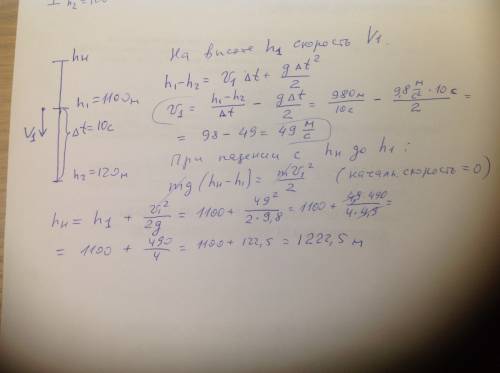 h₂ = 100
hн
h₁ = 1100м
V₁
Δt = 10с
h₂ = 120м
На высоте h₁ скорость V₁.
h₁-h₂ = V₁ Δt + gΔt²/2
V₁ = (h₁-h₂)/Δt - gΔt/2 = 980м/10с - (9,8 м/с² · 10с)/2 =
= 98 - 49 = 49 м/с
При падении с hн до h₁:
mg (hн-h₁) = mV₁²/2 (начальн. скорость = 0)
hн = h₁ + V₁²/2g = 1100 + 49²/(2·9,8) = 1100 + (49·490)/(4·4,9) =
= 1100 + 490/4 = 1100 + 122,5 = 1222,5 м